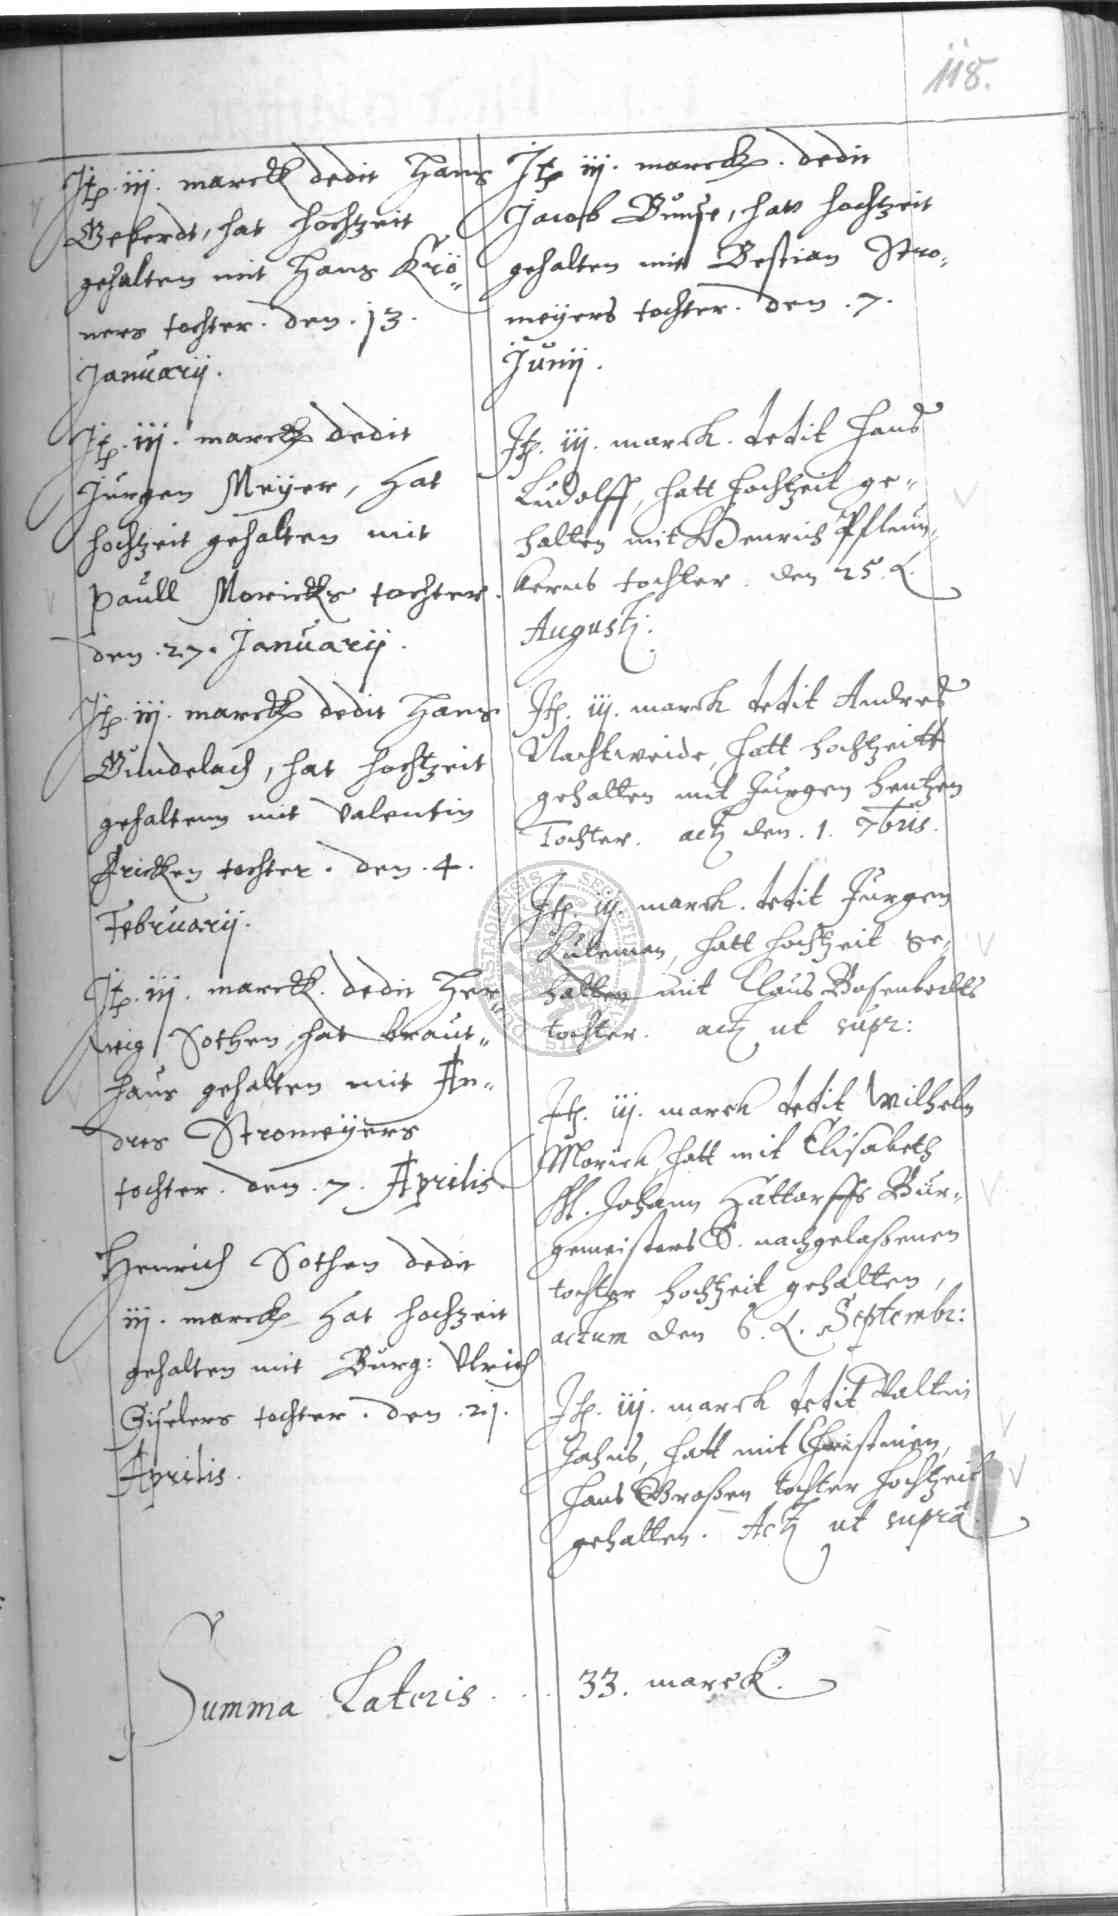 118.
Itp. iij. marck dedit Hans
Geferdt, hat hochtzeit
gehalten mit Hans Krö„
ners tochter. den. 13.
Januarij.
Itp. iij. marck dedit
Jurgen Meijer, hat
hochtzeit gehalten mit
Paull Moricks tochter.
den. 27. Januarij.
Itp. iij. marck dedit Hans
Gundelach, hat hochtzeit
gehaltenn mit Valentin
Fricken tochter. den. 4.
Februarij.
Itp. iij. marck. dedit Her„
wig Sothen hat braut„
haus gehalten mit An„
dres Stromeijers
tochter. den. 7. Aprilis
Henrich Sothen dedit
iij. marck hat hochzeit
gehalten mit Burg: Ulrich
Giselers tochter. den. 21.
Aprilis.
Itp iij. marck. dedit
Jacob Bunse, hatt hochtzeit
gehalten mit Bestian Stro„
meijers tochter. den. 7.
Junij.
Itp. iij. marck. dedit Hans
Ludolff, hatt hochtzeit ge„
halten mit Henrich
tochter. den 25. L.
Augustj.
Itp. iij. marck dedit Andres
Nachtweide, hatt hochtzeitt
gehalten mit Jurgen Hentzen
Tochter. actj den. 1. 7bris.
Itp. iij. marck. dedit Jurgen
Kuleman, hatt hochtzeit ge„
halten mit Claus
tochter. actj ut supr:
Itp. iij. marck dedit Wilhelm
Morick hatt mit Elisabeth
H. Johann Hattorffs Bur„
gemeisters S. nachgelaßenen
tochter hochtzeit gehalten,
actum den 6. L. Septembr:
Itp. iij. marck dedit Valtin
Jahns, hatt mit Christinen,
Hans Großen tochter hochtzeit
gehalten. Actj ut supra.
Summa Lateris . . . 33. marck.